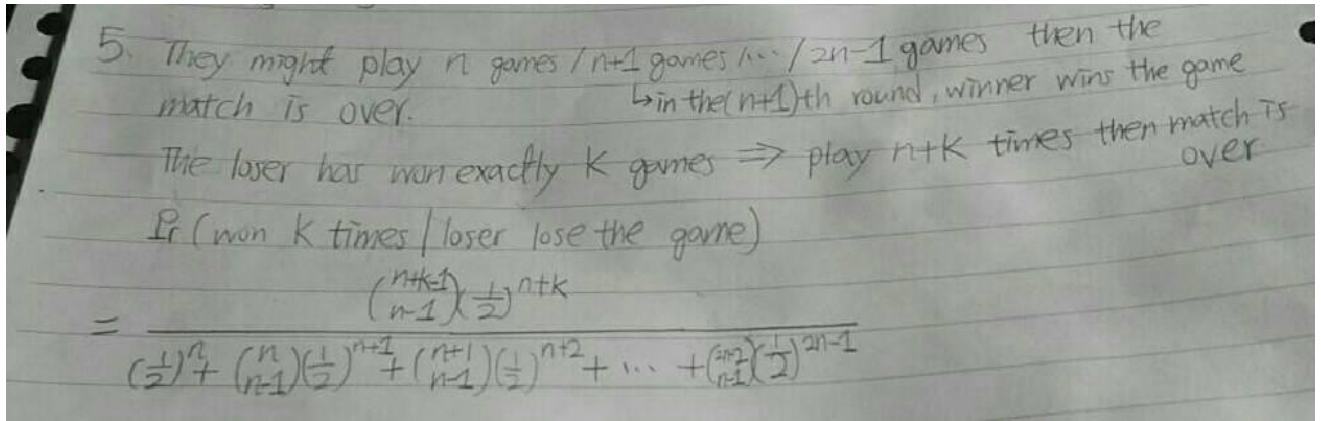 5. They might play n games / n+1 games /... / 2n-1 games then the
match is over. ↳in the(n+1)th round, winner wins the game
The loser has won exactly k games ⇒ play n+k times then match is
over
Pr (won k times | loser lose the game)
= \frac{\binom{n+k-1}{n-1}(\frac{1}{2})^{n+k}}{(\frac{1}{2})^n + \binom{n}{n-1}(\frac{1}{2})^{n+1} + \binom{n+1}{n-1}(\frac{1}{2})^{n+2} + ... + \binom{2n-2}{n-1}(\frac{1}{2})^{2n-1}}